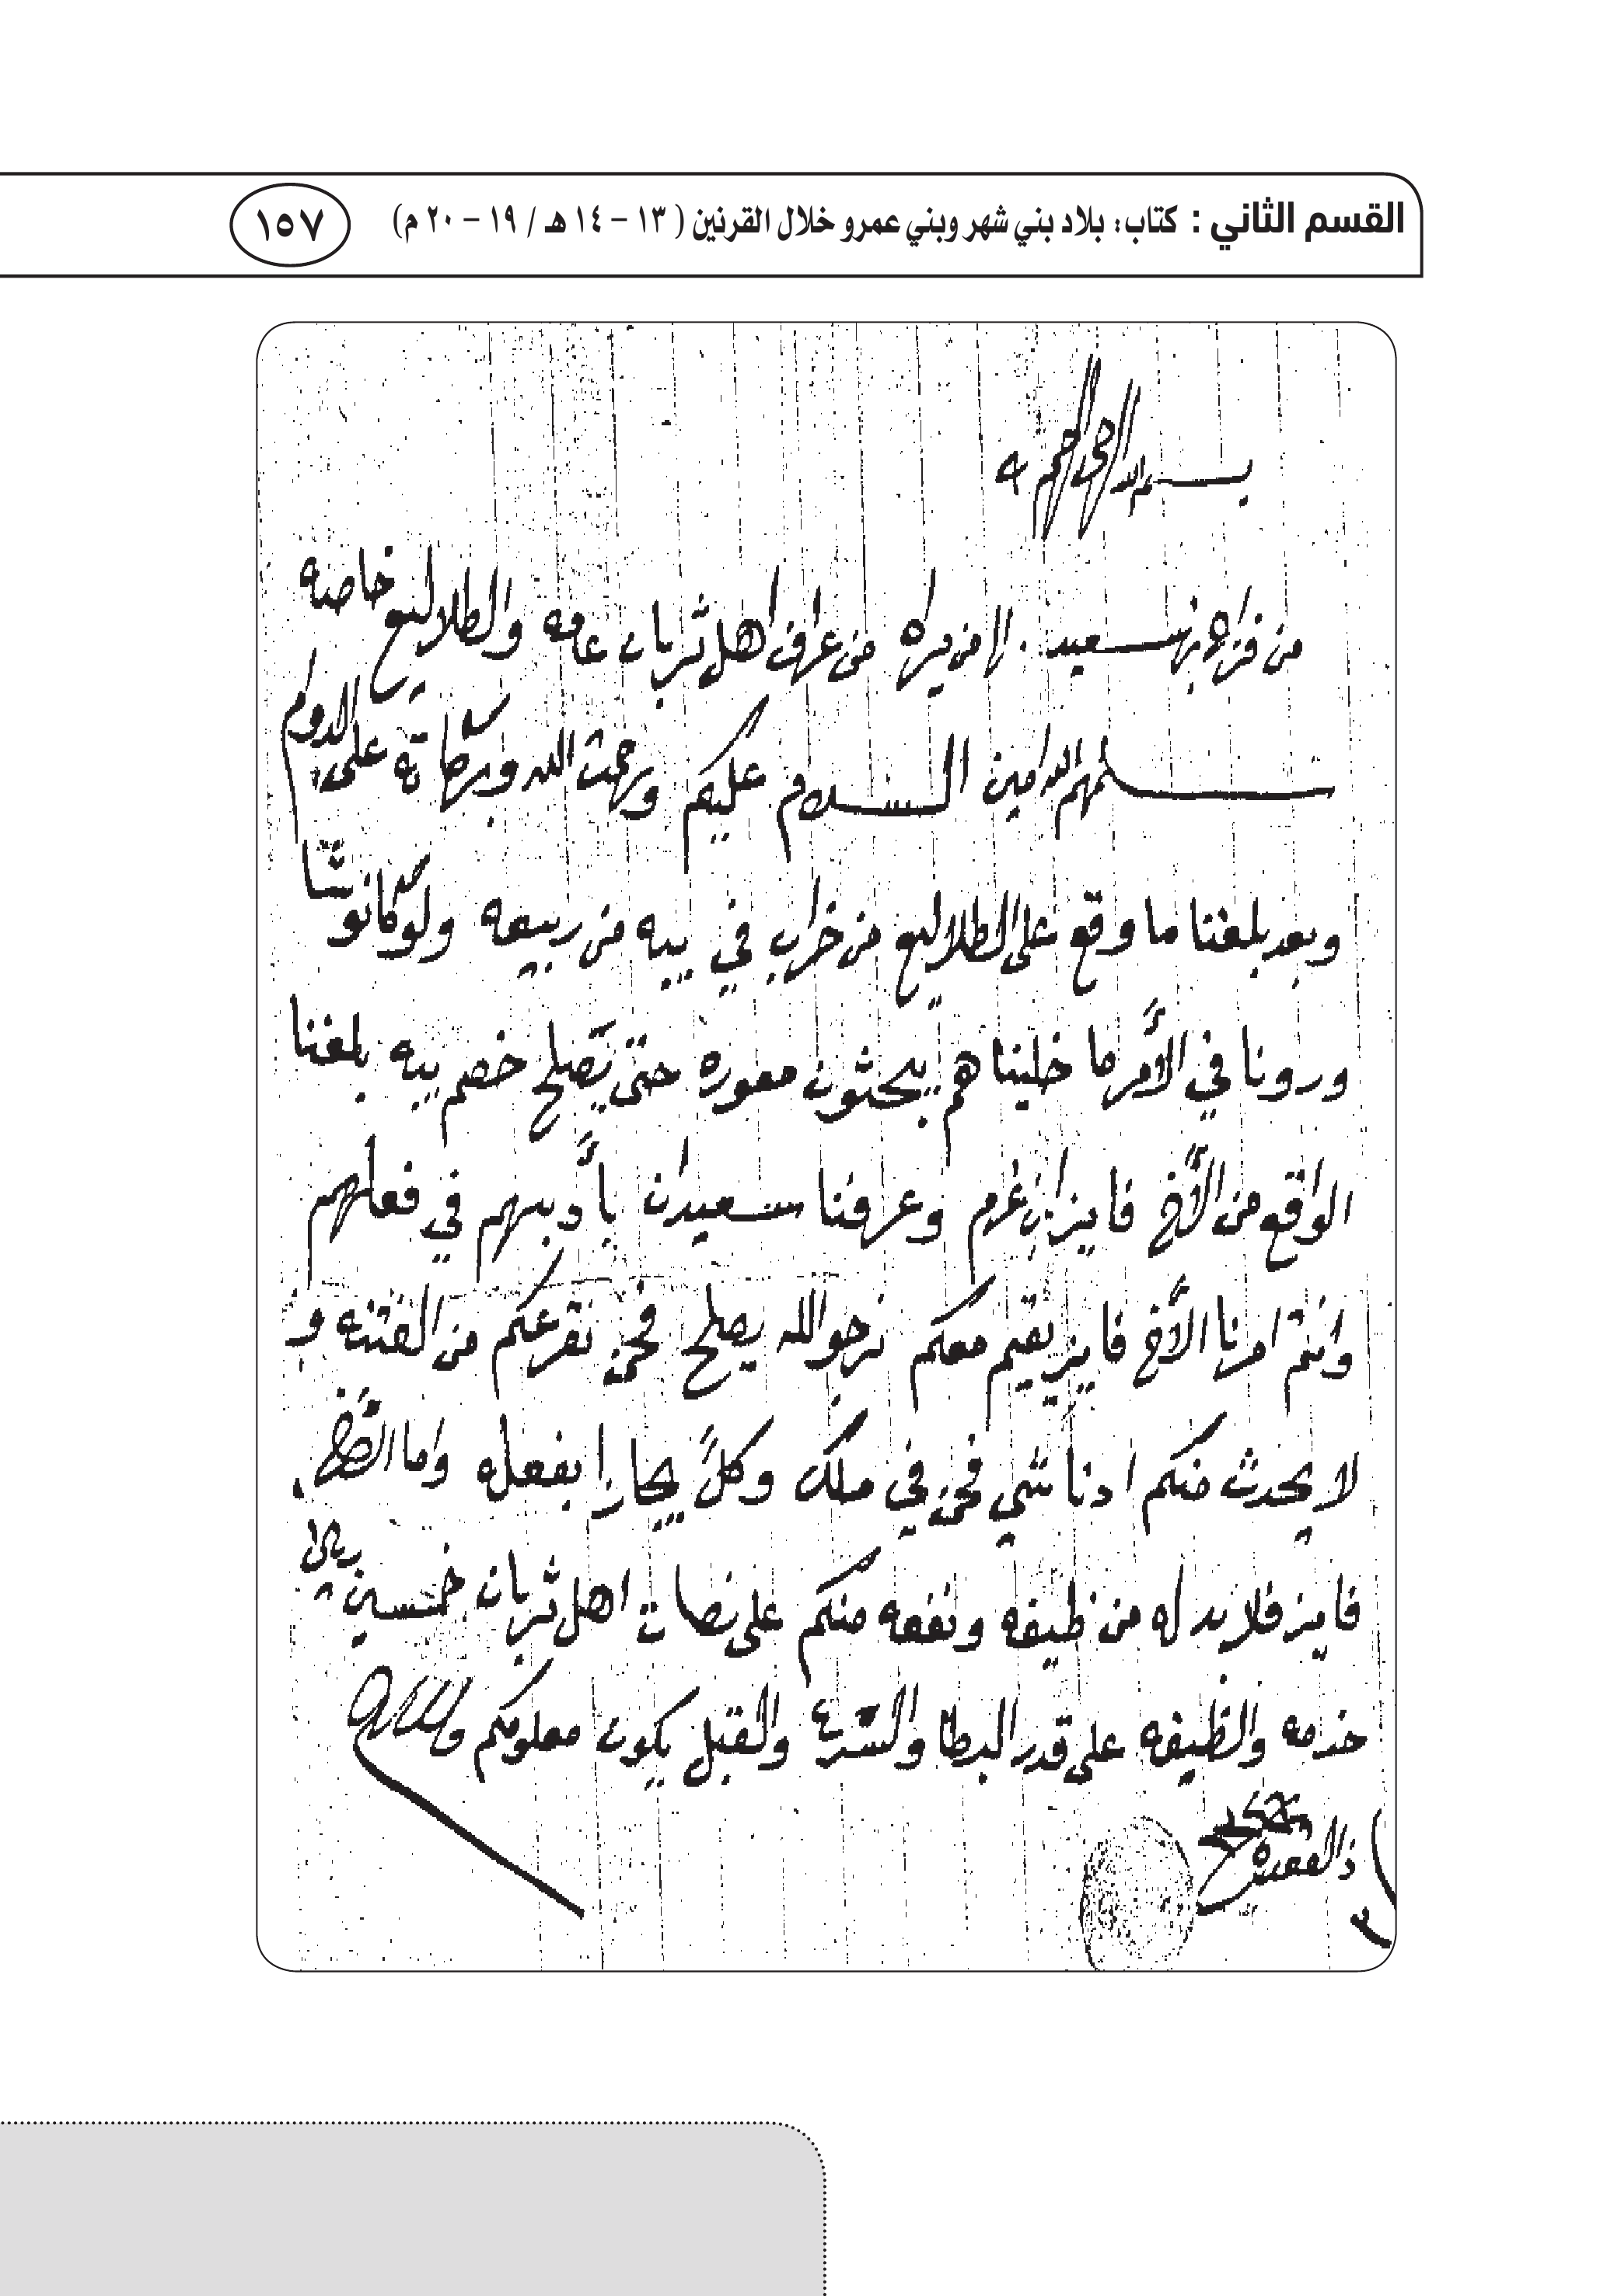 القسم الثاني : كتاب: بلاد بني شهر وبني عمرو خلال القرنين ( ١٣ – ١٤ هـ / ١٩ – ٢٠ م)
١٥٧
بسم الله الرحمن الرحيم
من بن سعيد الا من يراه من عراف اهل ثربان عامه والطلاليع خاصه
سلمهم الله امين السلام عليكم ورحمت الله وبركاته على الدوام
وبعد بلغنا ما وقع على الطلاليع من خراب في بيه من ربيعه ولو كانو
ورونا في الأمر ما خليناهم يبحثون معوره حتى تصلح خصم بيه بلغنا
الواقع من الأخ فايز ان غرم وعرفنا سعيدان يأدبهم في فعلهم
وانتم امرنا الأخ فايز يقيم معكم نرجو الله يصلح فحن نقرعكم من الفتنه و
لا يحدث منكم ادنا شي فحن في ملك وكلً يجازا بفعله واما
فايز فلا بد له من ظيفه ونفعه منكم على اهل ثربان خمسين ريال
خدمه والظيفه على قدر البطا والسرع والقبل يكون معلومكم والسلام
ذالقعده